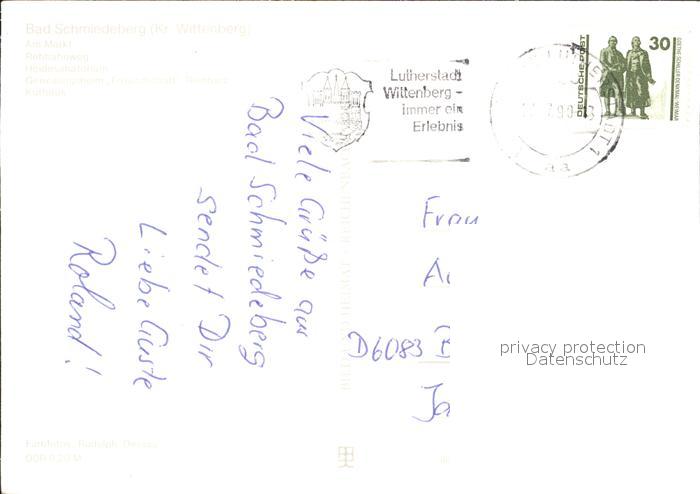 Bad Schmiedeberg (Kr. Wittenberg)
Am Markt
Rehhahnweg
Heidesanatorium
Genesungsheim "Freundschaft", Reinharz
Kurhaus
Lutherstadt
Wittenberg -
immer ein
Erlebnis
30
DEUTSCHE POST
GOETHE-SCHILLER-DENKMAL WEIMAR
90-8
aa
Viele Grüße aus
Bad Schmiedeberg
sendet Dir
Liebe Guste
Roland!
Frau
D6083
privacy protection
Datenschutz
Farbfotos: Rudolph, Dessau
DDR 0,20 M